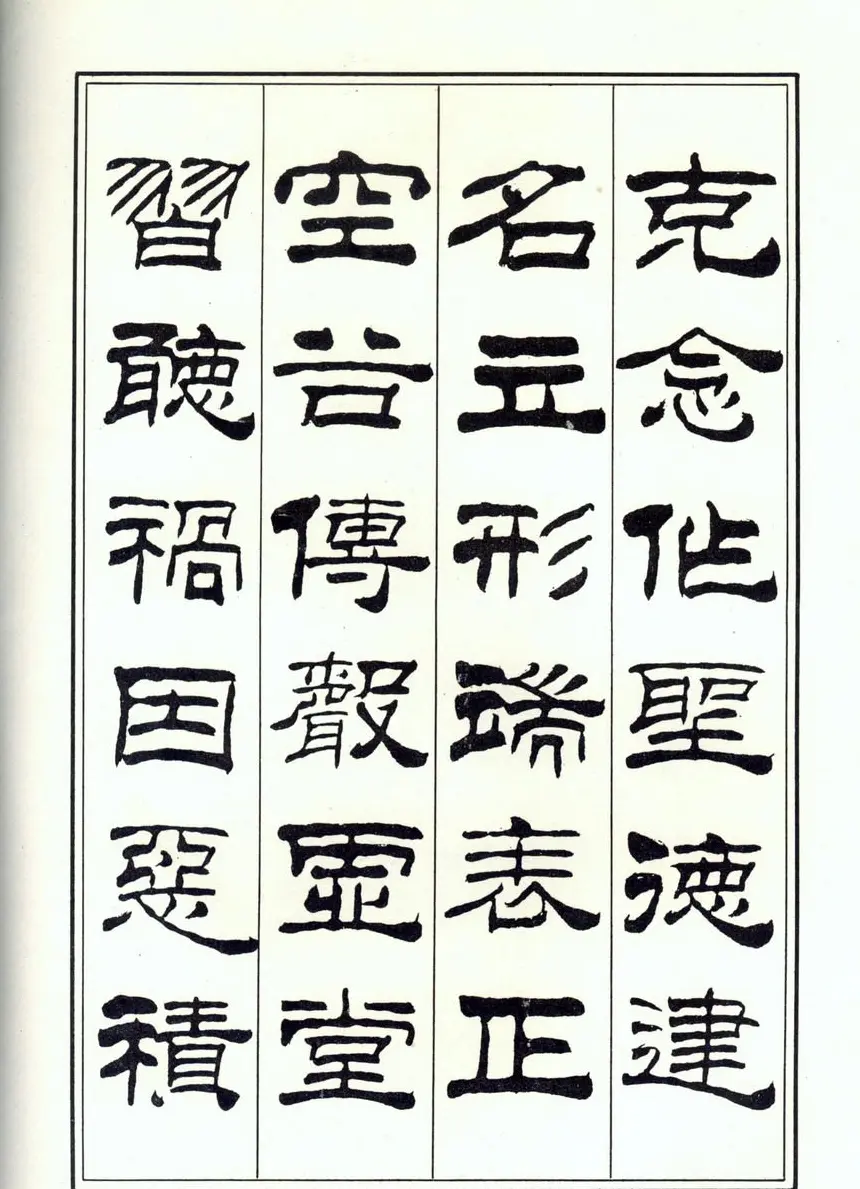 克念作聖德建
名立形端表正
空谷傳聲虛堂
習聽禍因惡積